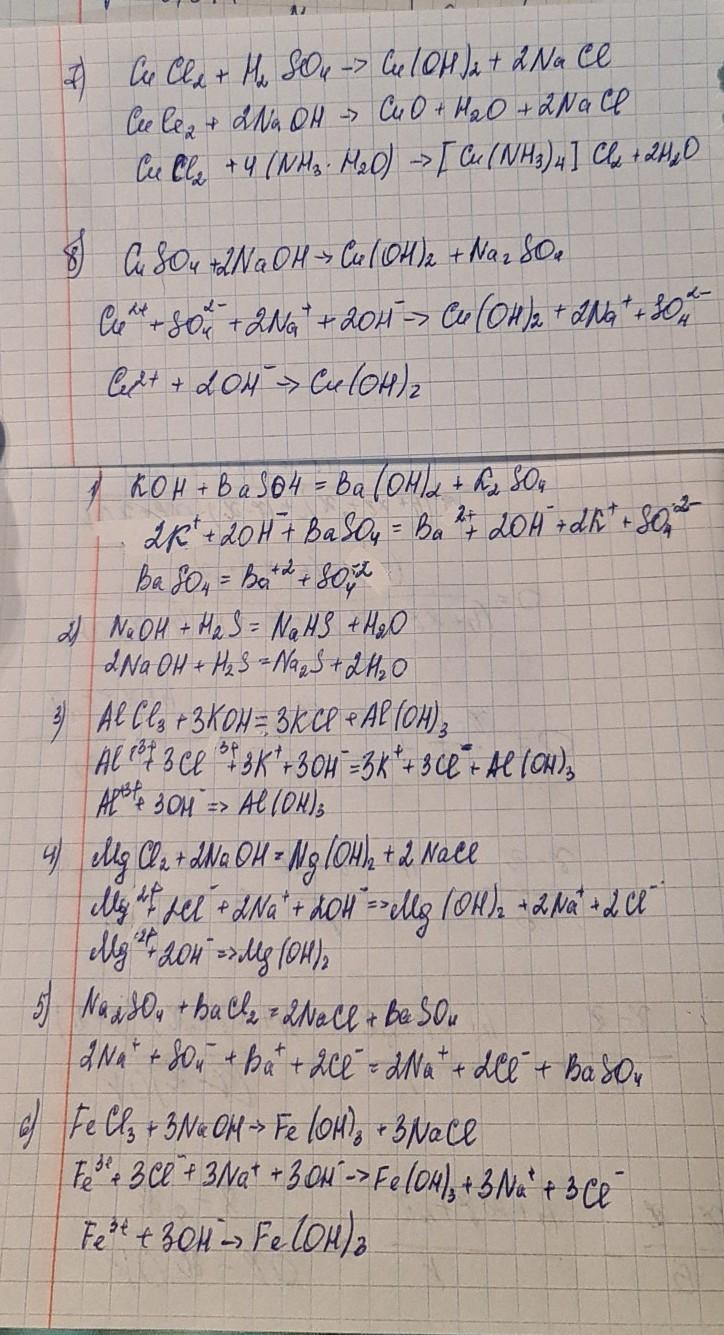 7) CuCl₂ + H₂SO₄ → Cu(OH)₂ + 2NaCl
CuCl₂ + 2NaOH → CuO + H₂O + 2NaCl
CuCl₂ + 4(NH₃·H₂O) → [Cu(NH₃)₄]Cl₂ + 2H₂O
8) CuSO₄ + 2NaOH → Cu(OH)₂ + Na₂SO₄
Cu²⁺ + SO₄²⁻ + 2Na⁺ + 2OH⁻ → Cu(OH)₂ + 2Na⁺ + SO₄²⁻
Cu²⁺ + 2OH⁻ → Cu(OH)₂
1) KOH + BaSO4 = Ba(OH)₂ + K₂SO₄
2K⁺ + 2OH⁻ + BaSO₄ = Ba²⁺ + 2OH⁻ + 2K⁺ + SO₄²⁻
BaSO₄ = Ba⁺² + SO₄⁻²
2) NaOH + H₂S = NaHS + H₂O
2NaOH + H₂S = Na₂S + 2H₂O
3) AlCl₃ + 3KOH = 3KCl + Al(OH)₃
Al³⁺ + 3Cl³⁺ + 3K⁺ + 3OH⁻ = 3K⁺ + 3Cl⁻ + Al(OH)₃
Al³⁺ + 3OH⁻ => Al(OH)₃
4) MgCl₂ + 2NaOH = Mg(OH)₂ + 2NaCl
Mg²⁺ + 2Cl⁻ + 2Na⁺ + 2OH⁻ => Mg(OH)₂ + 2Na⁺ + 2Cl⁻
Mg²⁺ + 2OH⁻ => Mg(OH)₂
5) Na₂SO₄ + BaCl₂ = 2NaCl + BaSO₄
2Na⁺ + SO₄⁻ + Ba⁺ + 2Cl⁻ = 2Na⁺ + 2Cl⁻ + BaSO₄
6) FeCl₃ + 3NaOH → Fe(OH)₃ + 3NaCl
Fe³⁺ + 3Cl⁻ + 3Na⁺ + 3OH⁻ → Fe(OH)₃ + 3Na⁺ + 3Cl⁻
Fe³⁺ + 3OH⁻ → Fe(OH)₃